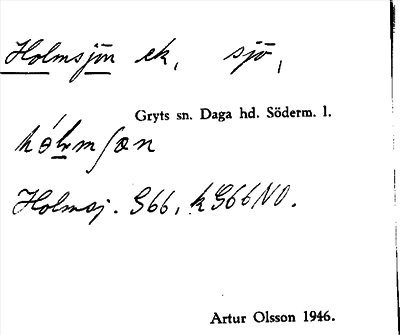 Holmsjön ek, sjö,
Gryts sn. Daga hd. Söderm. l.
Holmsj. G66, k G66 NO.
Artur Olsson 1946.